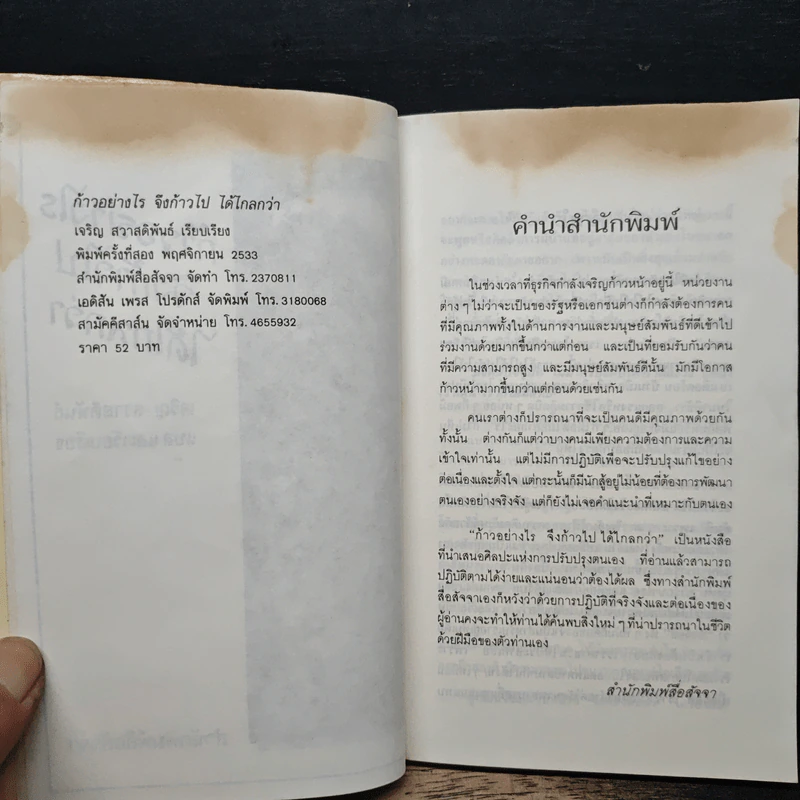 ก้าวอย่างไร จึงก้าวไป ได้ไกลกว่า
เจริญ สวาสดิพันธ์ เรียบเรียง
พิมพ์ครั้งที่สอง พฤศจิกายน 2533
สำนักพิมพ์สื่อสัจจา จัดทำ โทร. 2370811
เอดิสัน เพรส โปรดักส์ จัดพิมพ์ โทร. 3180068
สามัคคีสาส์น จัดจำหน่าย โทร. 4655932
ราคา 52 บาท
คำนำสำนักพิมพ์
ในช่วงเวลาที่ธุรกิจกำลังเจริญก้าวหน้าอยู่นี้ หน่วยงาน
ต่าง ๆ ไม่ว่าจะเป็นของรัฐหรือเอกชนต่างก็กำลังต้องการคน
ที่มีคุณภาพทั้งในด้านการงานและมนุษย์สัมพันธ์ที่ดีเข้าไป
ร่วมงานด้วยมากขึ้นกว่าแต่ก่อน และเป็นที่ยอมรับกันว่าคน
ที่มีความสามารถสูง และมีมนุษย์สัมพันธ์ดีนั้น มักมีโอกาส
ก้าวหน้ามากขึ้นกว่าแต่ก่อนด้วยเช่นกัน
คนเราต่างก็ปรารถนาที่จะเป็นคนดีมีคุณภาพด้วยกัน
ทั้งนั้น ต่างกันก็แต่ว่าบางคนมีเพียงความต้องการและความ
เข้าใจเท่านั้น แต่ไม่มีการปฏิบัติเพื่อจะปรับปรุงแก้ไขอย่าง
ต่อเนื่องและตั้งใจ แต่กระนั้นก็มีนักสู้อยู่ไม่น้อยที่ต้องการพัฒนา
ตนเองอย่างจริงจัง แต่ก็ยังไม่เจอคำแนะนำที่เหมาะกับตนเอง
"ก้าวอย่างไร จึงก้าวไป ได้ไกลกว่า" เป็นหนังสือ
ที่นำเสนอศิลปะแห่งการปรับปรุงตนเอง ที่อ่านแล้วสามารถ
ปฏิบัติตามได้ง่ายและแน่นอนว่าต้องได้ผล ซึ่งทางสำนักพิมพ์
สื่อสัจจาเองก็หวังว่าด้วยการปฏิบัติที่จริงจังและต่อเนื่องของ
ผู้อ่านคงจะทำให้ท่านได้ค้นพบสิ่งใหม่ ๆ ที่น่าปรารถนาในชีวิต
ด้วยฝีมือของตัวท่านเอง
สำนักพิมพ์สื่อสัจจา